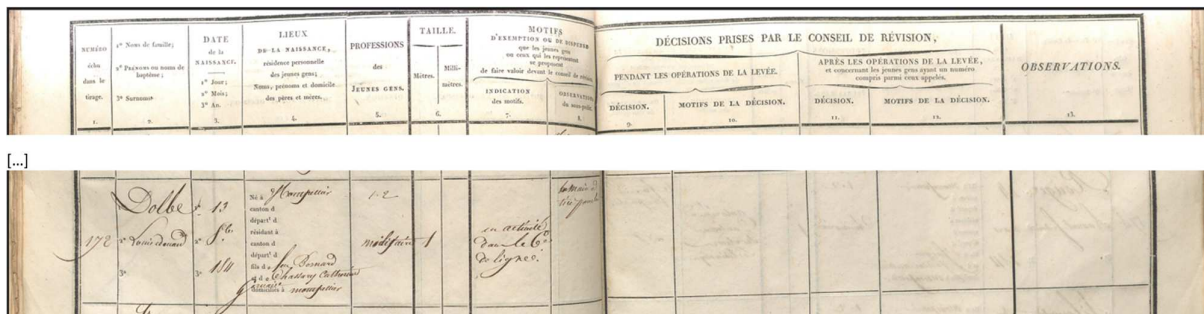 NUMÉRO
échu
dans le
tirage.
1.
1° Noms de famille;
2° Prénoms ou noms de
baptême;
3° Surnoms.
2.
DATE
de la
NAISSANCE.
1° Jour;
2° Mois;
3° An.
3.
LIEUX
DE LA NAISSANCE,
résidence personnelle
des jeunes gens;
Noms, prénoms et domicile
des pères et mères.
4.
PROFESSIONS
des
JEUNES GENS.
5.
TAILLE.
Mètres.
Milli-
mètres.
6.
MOTIFS
D'EXEMPTION OU DE DISPENSE
que les jeunes gens
ou ceux qui les représentent
se proposent
de faire valoir devant le conseil de révision.
INDICATION
des motifs.
7.
OBSERVATIONS
8.
DÉCISIONS PRISES PAR LE CONSEIL DE RÉVISION,
PENDANT LES OPÉRATIONS DE LA LEVÉE.
DÉCISION.
9.
MOTIFS DE LA DÉCISION.
10.
APRÈS LES OPÉRATIONS DE LA LEVÉE,
et concernant les jeunes gens ayant un numéro
compris parmi ceux appelés.
DÉCISION.
11.
MOTIFS DE LA DÉCISION.
12.
OBSERVATIONS.
13.
[...]
172
Dolbe
2° Louis
3°
1° 13
2° 8bre
3° 1811
Né à Montpellier
canton d
départ' d
résidant à
canton d
départ' d
fils d feu Bernard
et d Chassary Catherine
domiciliés à montpellier
militaire
1
en activité
dans le 6e
de ligne.